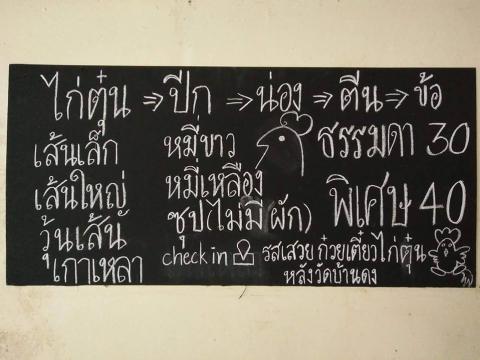 ไก่ตุ๋น ⇒ ปีก ⇒ น่อง ⇒ ตีน ⇒ ข้อ
เส้นเล็ก หมี่ขาว ธรรมดา 30
เส้นใหญ่ หมี่เหลือง พิเศษ 40
วุ้นเส้น ซุป(ไม่มีผัก)
เกาเหลา check in รสเสวย ก๋วยเตี๋ยวไก่ตุ๋น
หลังวัดบ้านดง